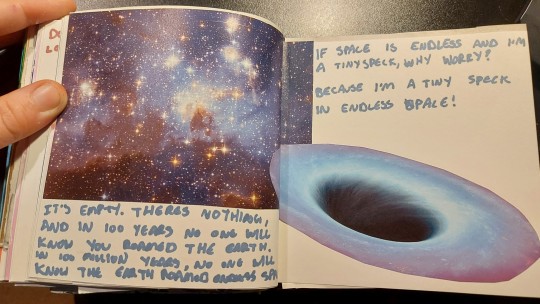 D
L
IT'S EMPTY. THERES NOTHING,
AND IN 100 YEARS NO ONE WILL
KNOW YOU ROAMED THE EARTH.
IN 100 MILLION YEARS, NO ONE WILL
KNOW THE EARTH ROAMED ENDLESS SPA
IF SPACE IS ENDLESS AND I'M
A TINY SPECK, WHY WORRY?
BECAUSE I'M A TINY SPECK
IN ENDLESS SPACE!